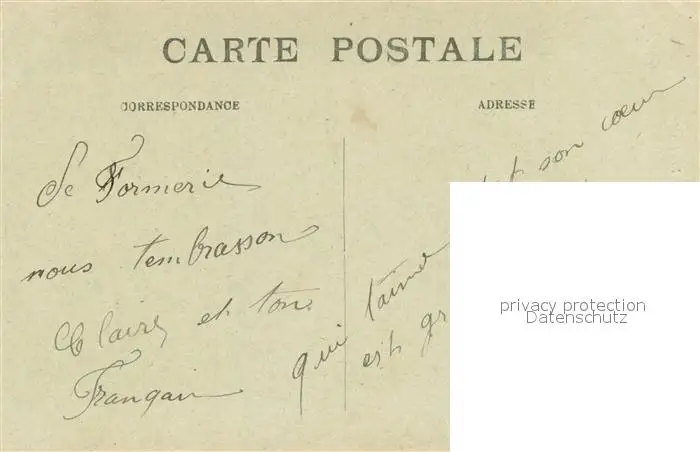 CARTE POSTALE
CORRESPONDANCE
ADRESSE
De Formerie
nous tembrasson
Claire et ton
Frangain
qui taime
et son coeur
est gr
privacy protection
Datenschutz